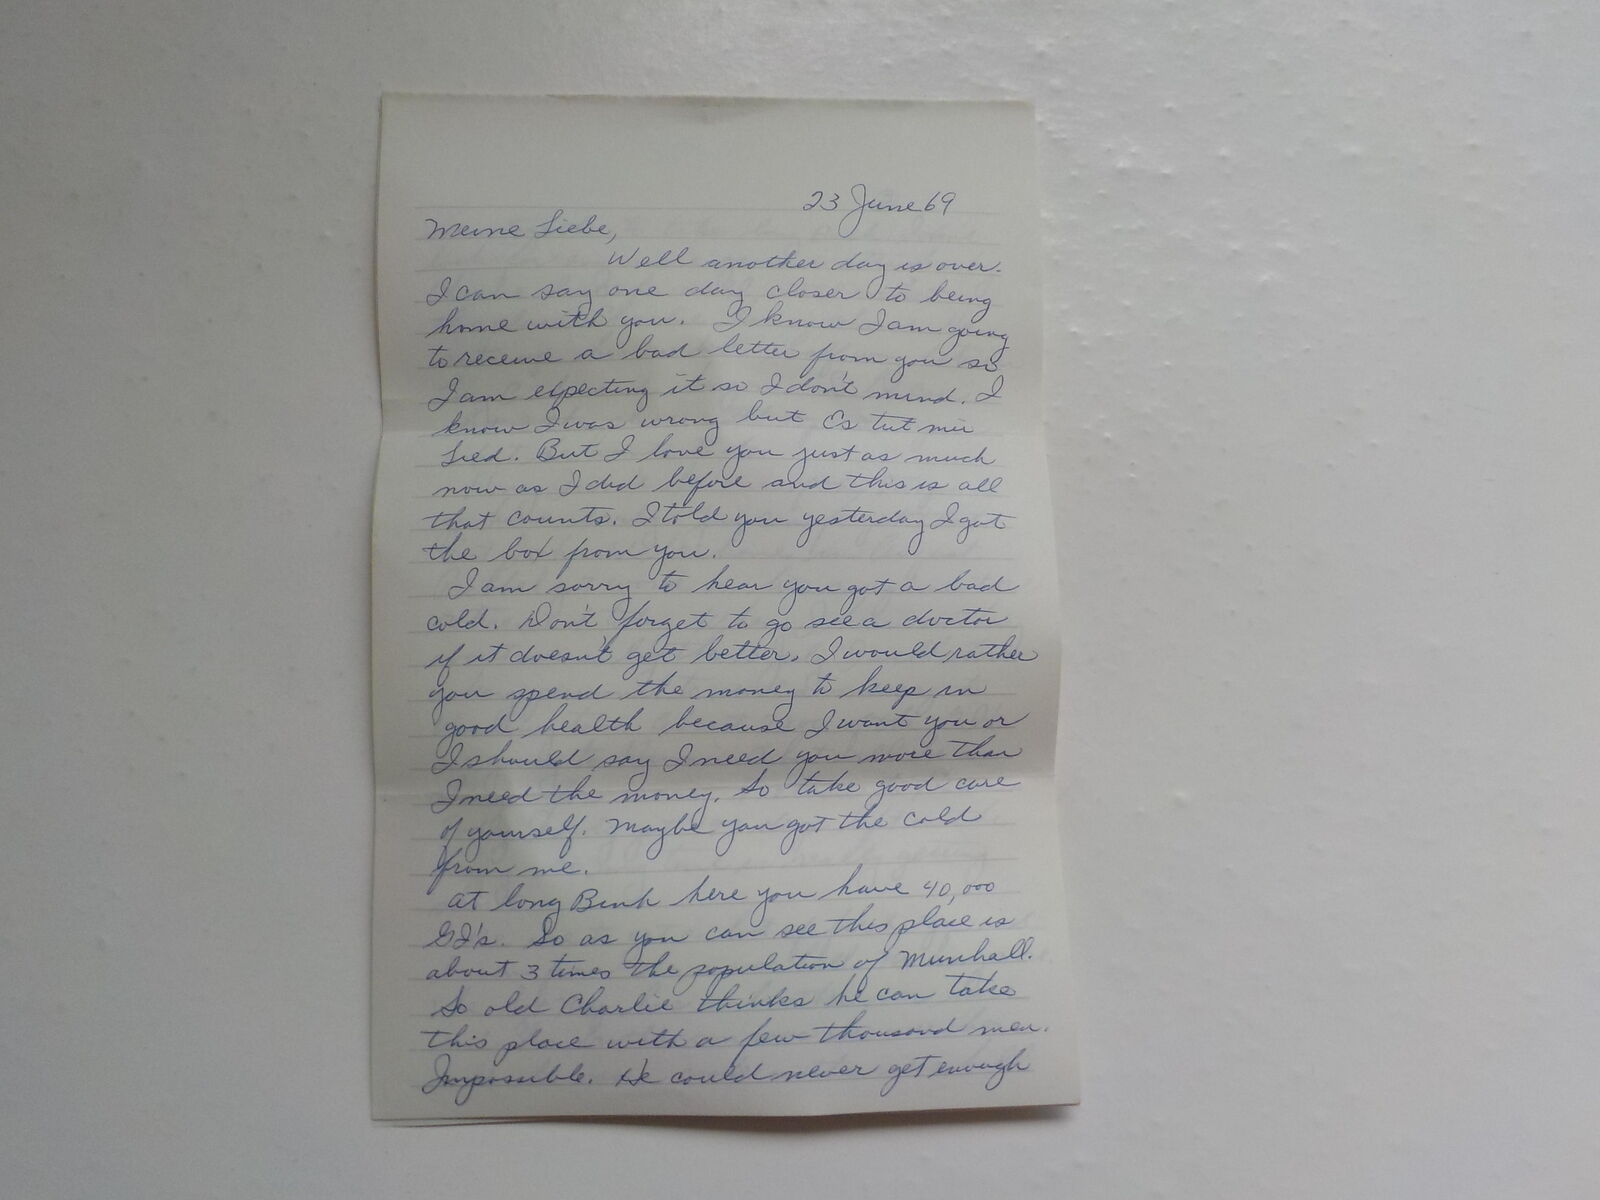 23 June 69
Meine Liebe,
Well another day is over.
I can say one day closer to being
home with you. I know I am going
to receive a bad letter from you so
I am expecting it so I don't mind. I
know I was wrong but Es tut mir
Lied. But I love you just as much
now as I did before and this is all
that counts. I told you yesterday I got
the box from you.
I am sorry to hear you got a bad
cold. Don't forget to go see a doctor
if it doesn't get better. I would rather
you spend the money to keep in
good health because I want you or
I should say I need you more than
I need the money. So take good care
of yourself. Maybe you got the cold
from me.
At long Binh here you have 40,000
GI's. So as you can see this place is
about 3 times the population of Munhall.
So old Charlie thinks he can take
this place with a few thousand men.
Impossible. He could never get enough